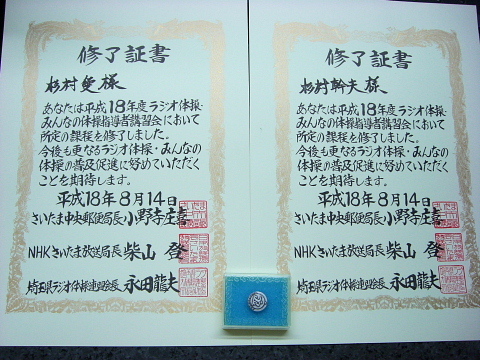 修了証書
杉村愛様
あなたは平成18年度ラジオ体操・
みんなの体操指導者講習会において
所定の課程を修了しました。
今後も更なるラジオ体操・みんなの
体操の普及促進に努めていただく
ことを期待します。
平成18年8月14日
さいたま中央郵便局長 小野寺庄喜
NHKさいたま放送局長 柴山 登
埼玉県ラジオ体操連盟会長 永田龍夫
修了証書
杉村幹夫様
あなたは平成18年度ラジオ体操・
みんなの体操指導者講習会において
所定の課程を修了しました。
今後も更なるラジオ体操・みんなの
体操の普及促進に努めていただく
ことを期待します。
平成18年8月14日
さいたま中央郵便局長 小野寺庄喜
NHKさいたま放送局長 柴山 登
埼玉県ラジオ体操連盟会長 永田龍夫